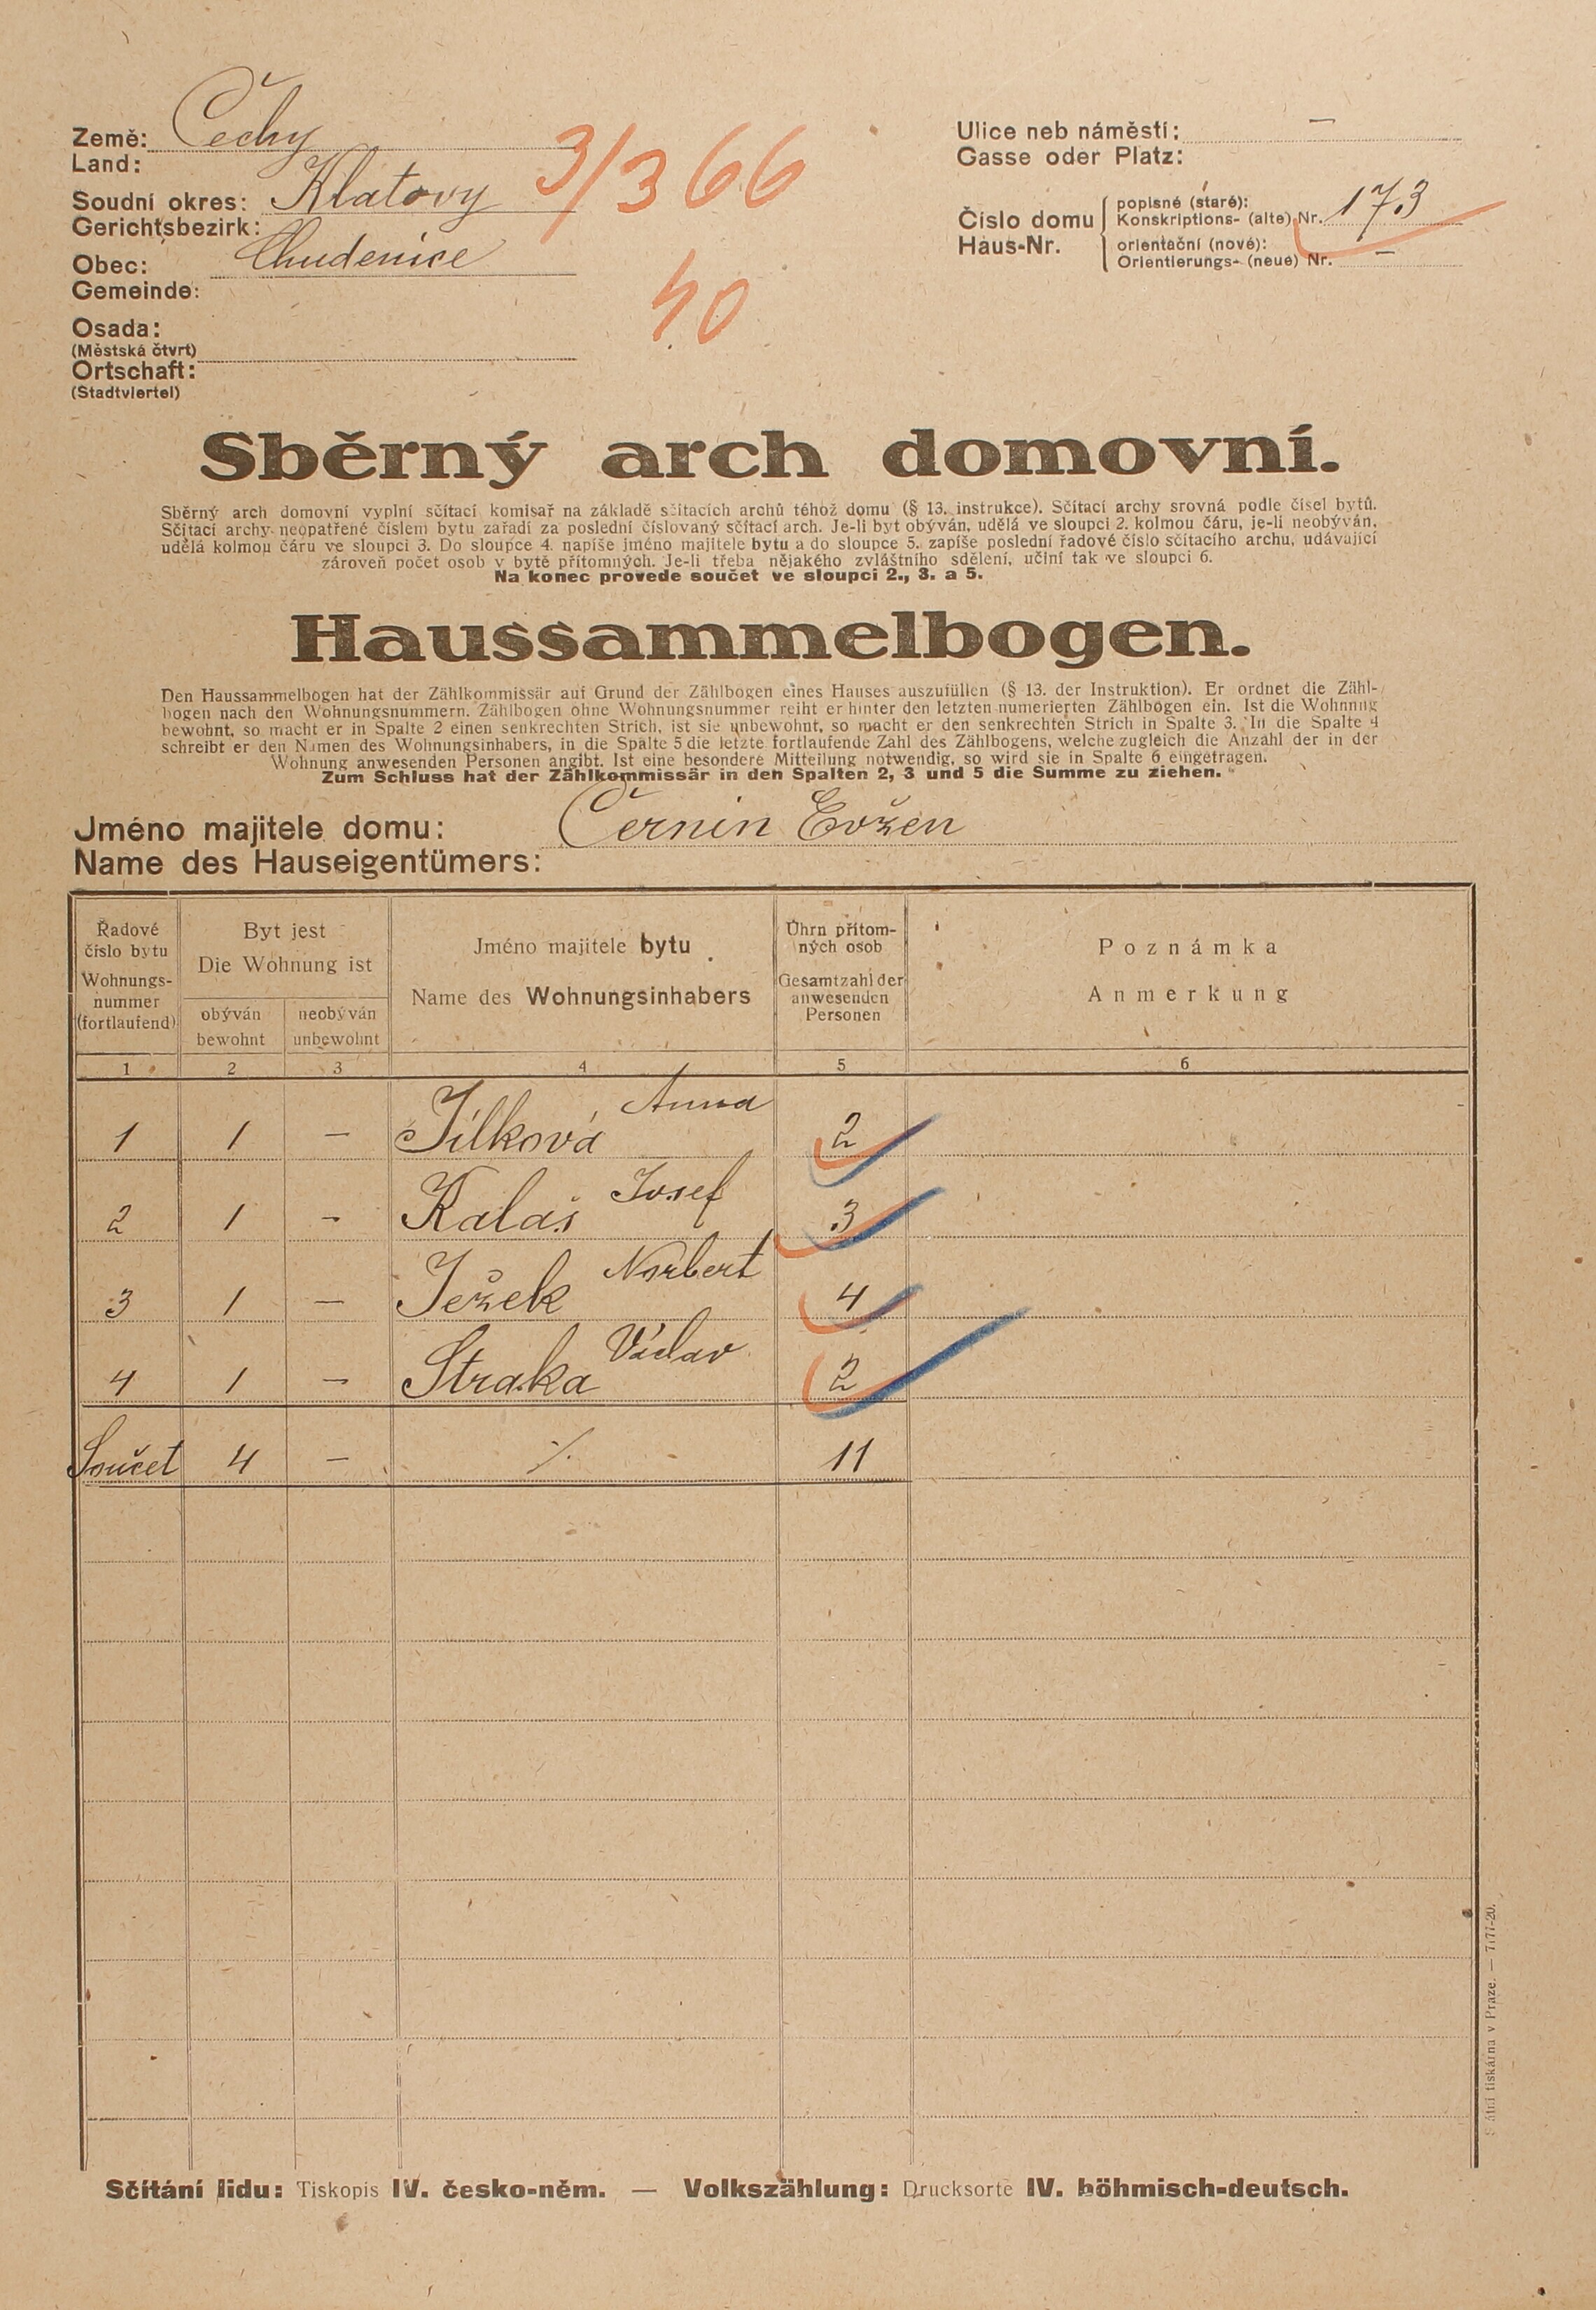 Země: Čechy
Land:
Soudní okres: Klatovy
Gerichtsbezirk:
Obec: Chudenice
Gemeinde:
Osada:
(Městská čtvrt)
Ortschaft:
(Stadtviertel)
3/366
40
Ulice neb náměstí: –
Gasse oder Platz:
Číslo domu
Haus-Nr.
popisné (staré):
Konskriptions- (alte) Nr. 173
orientační (nové):
Orientierungs- (neue) Nr. –
Sběrný arch domovní.
Sběrný arch domovní vyplní sčítací komisař na základě sčítacích archů téhož domu (§ 13. instrukce). Sčítací archy srovná podle čísel bytů.
Sčítací archy neopatřené číslem bytu zařadí za poslední číslovaný sčítací arch. Je-li byt obýván, udělá ve sloupci 2. kolmou čáru, je-li neobýván,
udělá kolmou čáru ve sloupci 3. Do sloupce 4. napíše jméno majitele bytu a do sloupce 5. zapíše poslední řadové číslo sčítacího archu, udávající
zároveň počet osob v bytě přítomných. Je-li třeba nějakého zvláštního sdělení, učiní tak ve sloupci 6.
Na konec provede součet ve sloupci 2., 3. a 5.
Haussammelbogen.
Den Haussammelbogen hat der Zählkommissär auf Grund der Zählbogen eines Hauses auszufüllen (§ 13. der Instruktion). Er ordnet die Zähl-
bogen nach den Wohnungsnummern. Zählbogen ohne Wohnungsnummer reiht er hinter den letzten numerierten Zählbogen ein. Ist die Wohnung
bewohnt, so macht er in Spalte 2 einen senkrechten Strich, ist sie unbewohnt, so macht er den senkrechten Strich in Spalte 3. In die Spalte 4
schreibt er den Namen des Wohnungsinhabers, in die Spalte 5 die letzte fortlaufende Zahl des Zählbogens, welche zugleich die Anzahl der in der
Wohnung anwesenden Personen angibt. Ist eine besondere Mitteilung notwendig, so wird sie in Spalte 6 eingetragen.
Zum Schluss hat der Zählkommissär in den Spalten 2, 3 und 5 die Summe zu ziehen.
Jméno majitele domu: Černin Evžen
Name des Hauseigentümers:
Řadové
číslo bytu
Wohnungs-
nummer
(fortlaufend)
Byt jest
Die Wohnung ist
obýván
bewohnt
neobýván
unbewohnt
Jméno majitele bytu
Name des Wohnungsinhabers
Úhrn přítom-
ných osob
Gesamtzahl der
anwesenden
Personen
Poznámka
Anmerkung
1 2 3 4 5 6
1 1 – Jílková Anna 2
2 1 – Kalaš Josef 3
3 1 – Ježek Norbert 4
4 1 – Straka Václav 2
Součet 4 – ⁒ 11
Sčítání lidu: Tiskopis IV. česko-něm. — Volkszählung: Drucksorte IV. böhmisch-deutsch.
Státní tiskárna v Praze. — 7177-20.